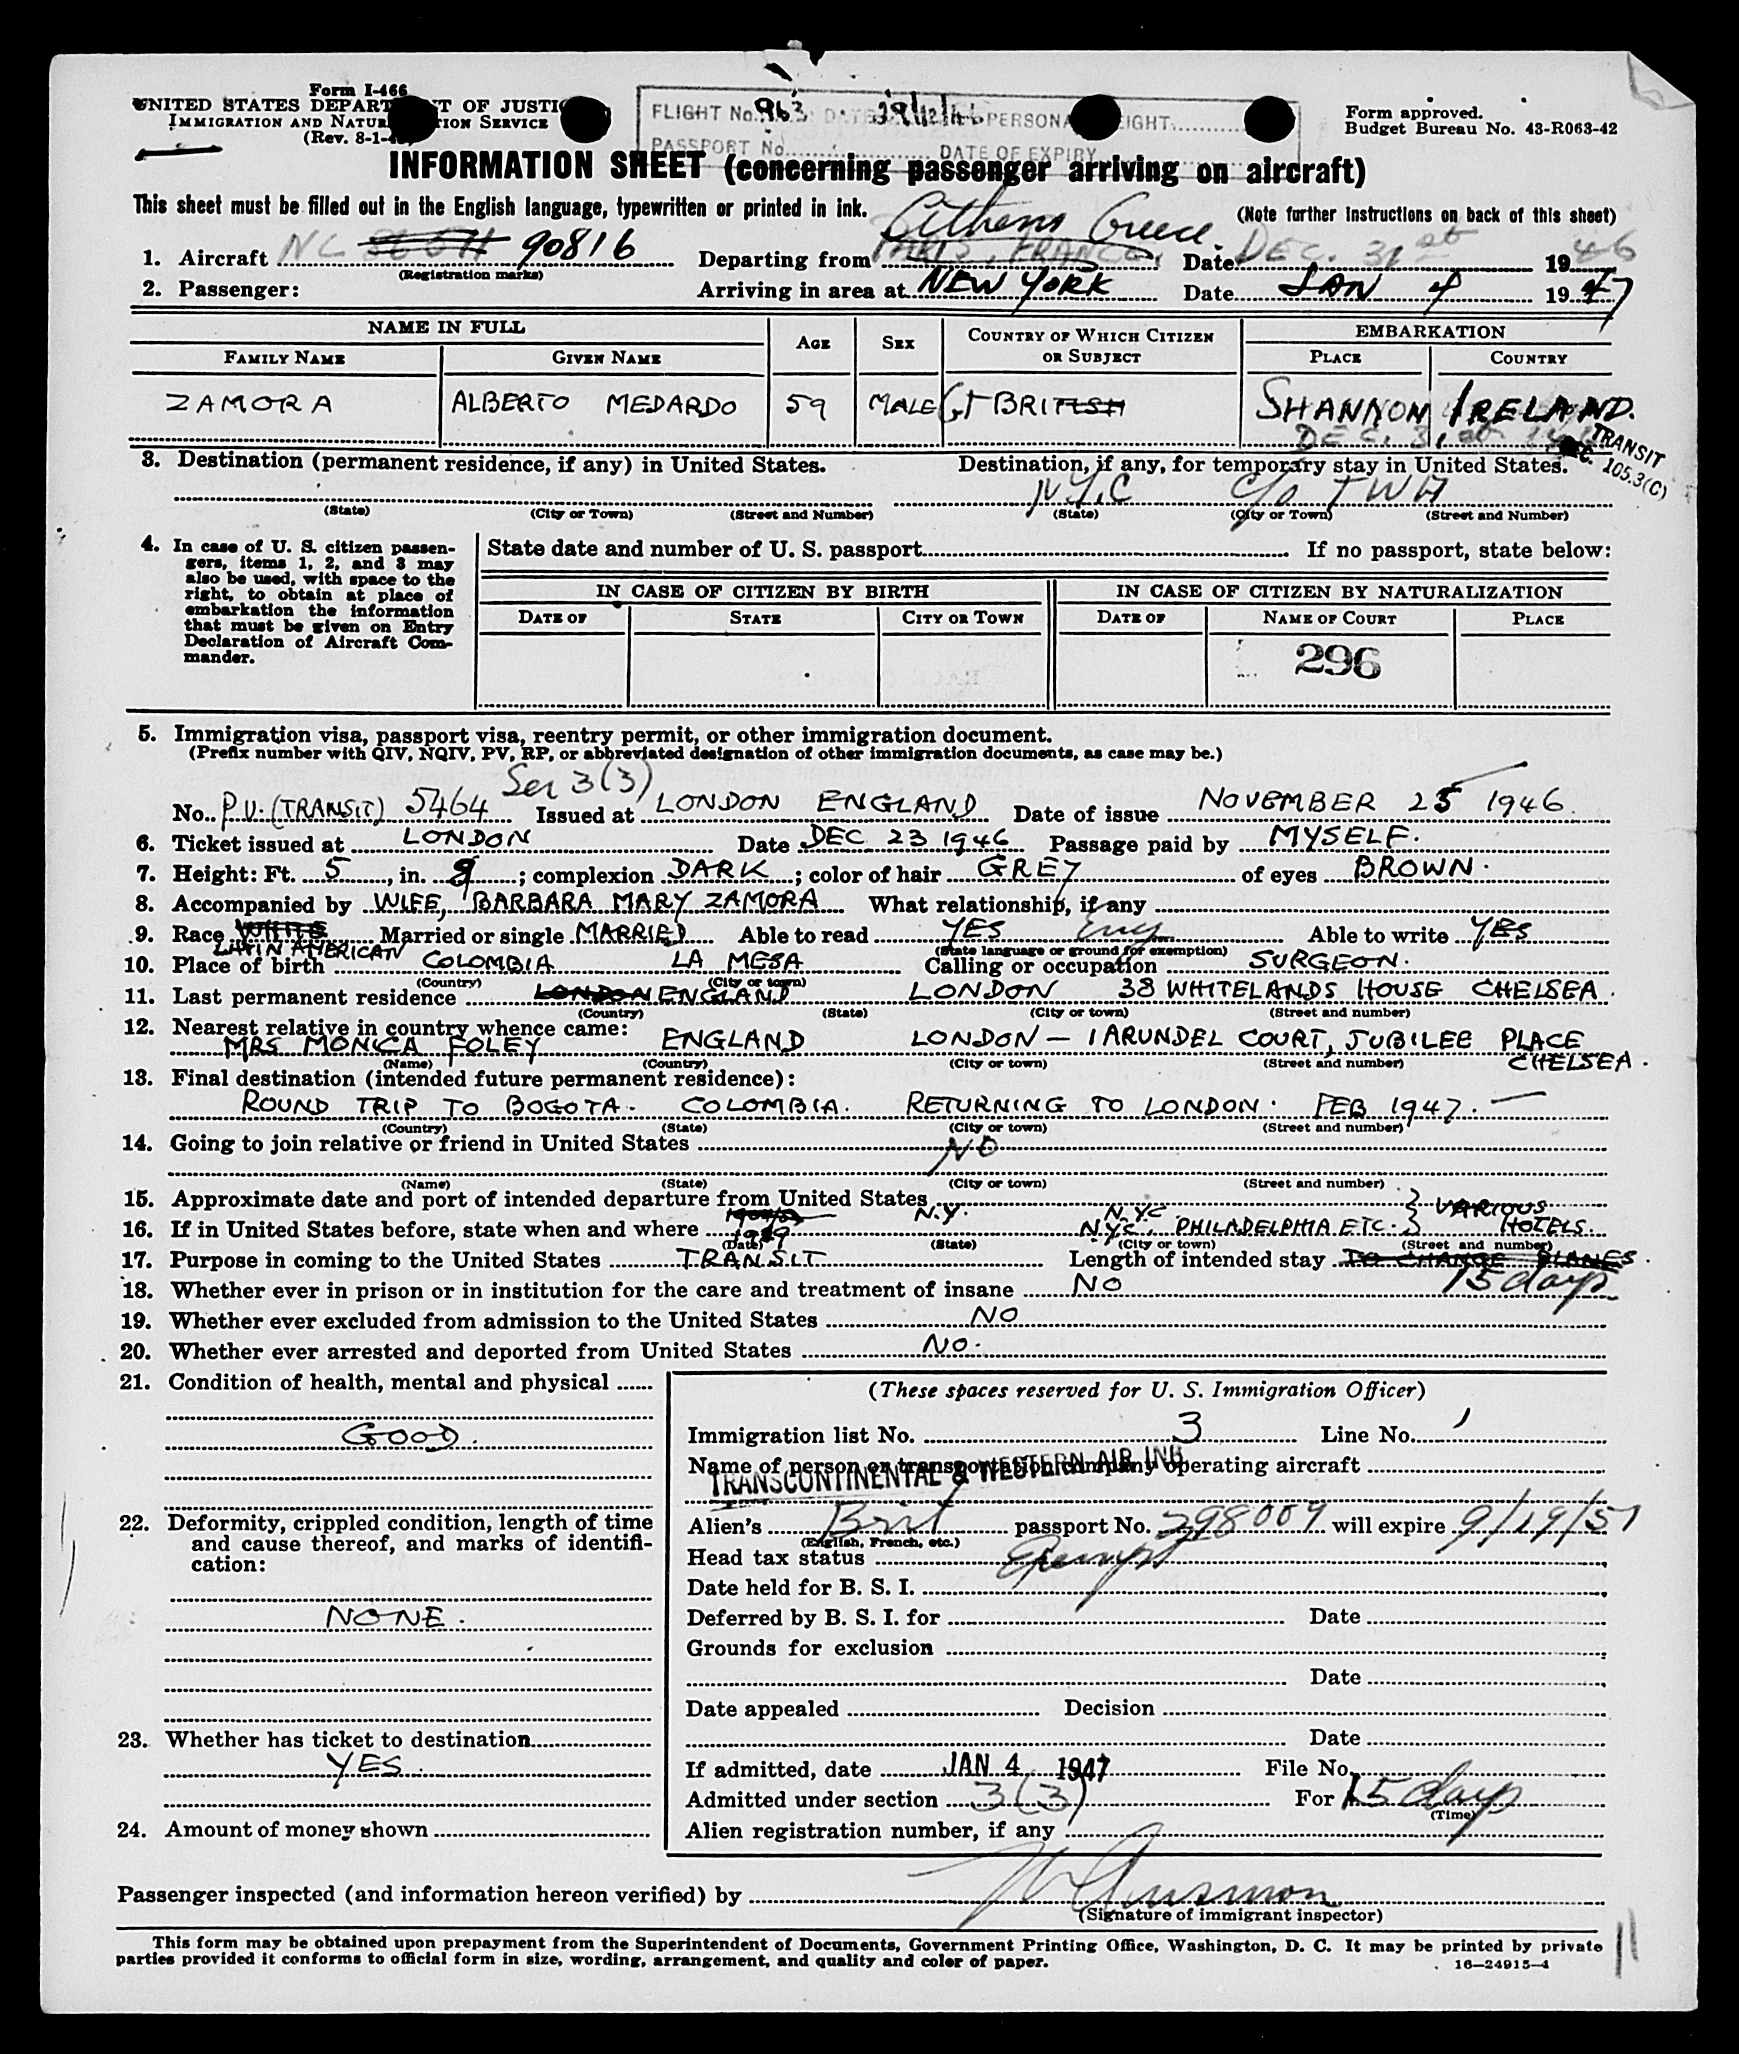 Form I-466
UNITED STATES DEPART T OF JUSTI
IMMIGRATION AND NATUR TION SERVICE
(Rev. 8-1-4
FLIGHT No. 963 DATE 29/12/46 PERSONA IGHT
PASSPORT No. DATE OF EXPIRY
Form approved.
Budget Bureau No. 43-R063-42
INFORMATION SHEET (concerning passenger arriving on aircraft)
This sheet must be filled out in the English language, typewritten or printed in ink.
(Note further instructions on back of this sheet)
Athens Greece.
1. Aircraft NC 90816 Departing from PARIS, FRANCE, Date DEC. 31st 1946
(Registration marks)
2. Passenger: Arriving in area at NEW YORK Date JAN 4 1947
NAME IN FULL AGE SEX COUNTRY OF WHICH CITIZEN OR SUBJECT EMBARKATION
FAMILY NAME GIVEN NAME PLACE COUNTRY
ZAMORA ALBERTO MEDARDO 59 MALE Gt BRITISH SHANNON IRELAND.
DEC. 31st
TRANSIT
105.3(C)
3. Destination (permanent residence, if any) in United States. Destination, if any, for temporary stay in United States.
N.Y.C c/o TWA
(State) (City or Town) (Street and Number) (State) (City or Town) (Street and Number)
4. In case of U. S. citizen passen-
gers, items 1, 2, and 3 may
also be used, with space to the
right, to obtain at place of
embarkation the information
that must be given on Entry
Declaration of Aircraft Com-
mander.
State date and number of U. S. passport If no passport, state below:
IN CASE OF CITIZEN BY BIRTH IN CASE OF CITIZEN BY NATURALIZATION
DATE OF STATE CITY OR TOWN DATE OF NAME OF COURT PLACE
296
5. Immigration visa, passport visa, reentry permit, or other immigration document.
(Prefix number with QIV, NQIV, PV, RP, or abbreviated designation of other immigration documents, as case may be.)
Sec 3(3)
No. P.V. (TRANSIT) 5464 Issued at LONDON ENGLAND Date of issue NOVEMBER 25 1946.
6. Ticket issued at LONDON Date DEC 23 1946 Passage paid by MYSELF.
7. Height: Ft. 5, in. 9; complexion DARK; color of hair GREY of eyes BROWN.
8. Accompanied by WIFE, BARBARA MARY ZAMORA What relationship, if any
9. Race WHITE Married or single MARRIED Able to read YES Eng Able to write YES
LATIN AMERICAN (State language or ground for exemption)
10. Place of birth COLOMBIA LA MESA Calling or occupation SURGEON.
(Country) (City or town)
11. Last permanent residence LONDON ENGLAND LONDON 38 WHITELANDS HOUSE CHELSEA.
(Country) (State) (City or town) (Street and number)
12. Nearest relative in country whence came:
MRS MONICA FOLEY ENGLAND LONDON — 1 ARUNDEL COURT, JUBILEE PLACE
CHELSEA.
(Name) (Country) (City or town) (Street and number)
13. Final destination (intended future permanent residence):
ROUND TRIP TO BOGOTA. COLOMBIA. RETURNING TO LONDON. FEB 1947. —
(Country) (State) (City or town) (Street and number)
14. Going to join relative or friend in United States NO
(Name) (State) (City or town) (Street and number)
15. Approximate date and port of intended departure from United States
N.Y. N.Y.C. VARIOUS
16. If in United States before, state when and where N.Y.C., PHILADELPHIA ETC. HOTELS.
(Date) (State) (City or town) (Street and number)
17. Purpose in coming to the United States TRANSIT Length of intended stay TO CHANGE PLANES.
15 days
18. Whether ever in prison or in institution for the care and treatment of insane NO
19. Whether ever excluded from admission to the United States NO
20. Whether ever arrested and deported from United States NO.
21. Condition of health, mental and physical
GOOD.
22. Deformity, crippled condition, length of time
and cause thereof, and marks of identifi-
cation:
NONE.
23. Whether has ticket to destination
YES.
24. Amount of money shown
(These spaces reserved for U. S. Immigration Officer)
Immigration list No. 3 Line No. 1
Name of person or transportation company operating aircraft
TRANSCONTINENTAL & WESTERN AIR INC.
Alien's Brit passport No. 298009 will expire 9/19/51
(English, French, etc.)
Head tax status Exempt
Date held for B. S. I.
Deferred by B. S. I. for Date
Grounds for exclusion
Date
Date appealed Decision
Date
If admitted, date JAN 4 1947 File No.
Admitted under section 3(3) For 15 days
(Time)
Alien registration number, if any
Passenger inspected (and information hereon verified) by
(Signature of immigrant inspector)
This form may be obtained upon prepayment from the Superintendent of Documents, Government Printing Office, Washington, D. C. It may be printed by private
parties provided it conforms to official form in size, wording, arrangement, and quality and color of paper.
16—24915-4